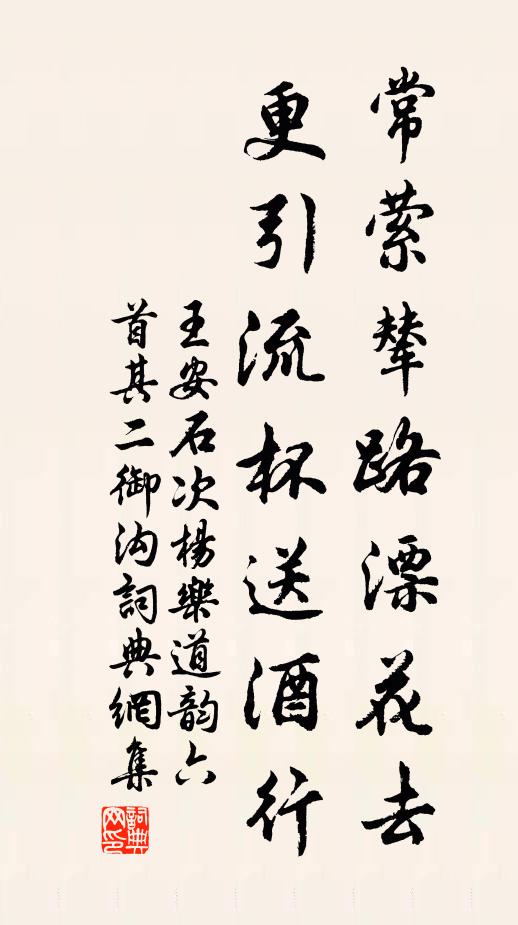 常萦輦路漂花去
更引流杯送酒行
王安石次楊樂道韵六
首其二御沟詞典網集
詞典網印